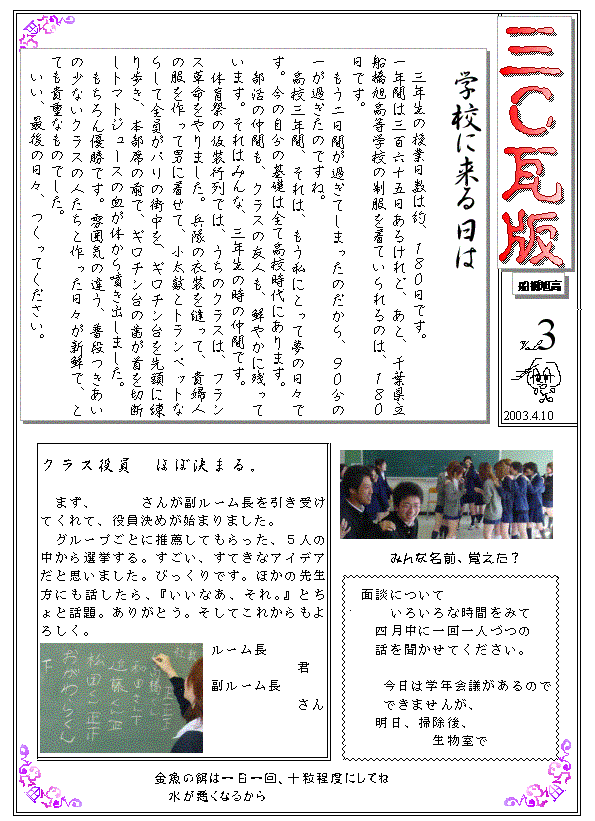 三C瓦版
船橋旭高
Vol.
3
2003.4.10
学校に来る日は
三年生の授業日数は約、180日です。
一年間は三百六十五日あるけれど、あと、千葉県立
船橋旭高等学校の制服を着ていられるのは、180
日です。
もう二日間が過ぎてしまったのだから、90分の
一が過ぎたのですね。
高校三年間、それは、もう私にとって夢の日々で
す。今の自分の基礎は全て高校時代にあります。
部活の仲間も、クラスの友人も、鮮やかに残って
います。それはみんな、三年生の時の仲間です。
体育祭の仮装行列では、うちのクラスは、フラン
ス革命をやりました。兵隊の衣装を縫って、貴婦人
の服を作って男に着せて、小太鼓とトランペットな
らして全員がパリの街中を、ギロチン台を先頭に練
り歩き、本部席の前で、ギロチン台の歯が首を切断
しトマトジュースの血が体から噴き出しました。
もちろん優勝です。雰囲気の違う、普段つきあい
の少ないクラスの人たちと作った日々が新鮮で、と
ても貴重なものでした。
いい、最後の日々、つくってください。
クラス役員　ほぼ決まる。
まず、　　　さんが副ルーム長を引き受け
てくれて、役員決めが始まりました。
グループごとに推薦してもらった、５人の
中から選挙する。すごい、すてきなアイデア
だと思いました。びっくりです。ほかの先生
方にも話したら、『いいなあ、それ。』とち
ょと話題。ありがとう。そしてこれからもよ
ろしく。
ルーム長
君
副ルーム長
さん
近藤くん正
松田くん正正
おがわらくん
下
みんな名前、覚えた？
面談について
いろいろな時間をみて
四月中に一回一人づつの
話を聞かせてください。
今日は学年会議があるので
できませんが、
明日、掃除後、
生物室で
金魚の餌は一日一回、十粒程度にしてね
水が悪くなるから